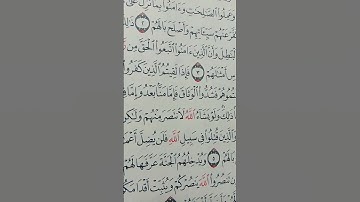 وَعَمِلُوا۟ ٱلصَّـٰلِحَـٰتِ وَءَامَنُوا۟ بِمَا نُزِّلَ عَلَىٰ
عَنْهُمْ سَيِّـَٔاتِهِمْ وَأَصْلَحَ بَالَهُمْ ٢
ٱلْبَـٰطِلَ وَأَنَّ ٱلَّذِينَ ءَامَنُوا۟ ٱتَّبَعُوا۟ ٱلْحَقَّ مِن
أَمْثَـٰلَهُمْ ٣ فَإِذَا لَقِيتُمُ ٱلَّذِينَ كَفَرُوا۟
فَشُدُّوا۟ ٱلْوَثَاقَ فَإِمَّا مَنًّۢا بَعْدُ وَإِمَّا
ذَٰلِكَ وَلَوْ يَشَآءُ ٱللَّهُ لَٱنتَصَرَ مِنْهُمْ وَلَـٰكِن
وَٱلَّذِينَ قُتِلُوا۟ فِى سَبِيلِ ٱللَّهِ فَلَن يُضِلَّ
بَالَهُمْ ٥ وَيُدْخِلُهُمُ ٱلْجَنَّةَ عَرَّفَهَا لَهُمْ
تَنصُرُوا۟ ٱللَّهَ يَنصُرْكُمْ وَيُثَبِّتْ أَقْدَامَكُمْ